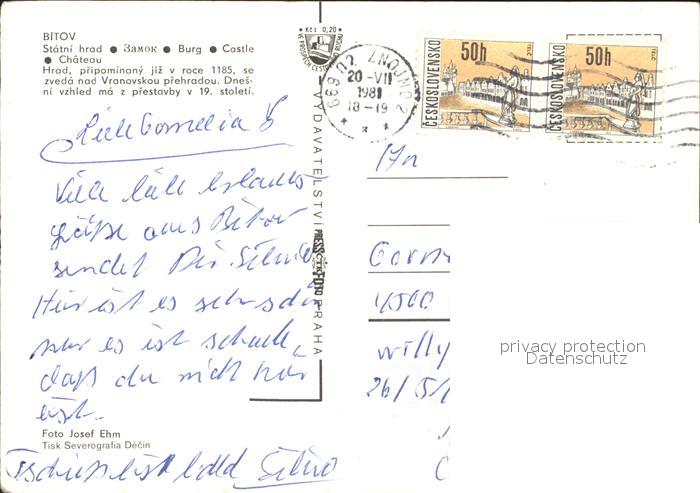 BÍTOV
Státní hrad ● Замок ● Burg ● Castle
● Château
Hrad, připomínaný již v roce 1185, se
zvedá nad Vranovskou přehradou. Dneš-
ní vzhled má z přestavby v 19. století.
Kčs 0,20
669 02 ZNOJMO 2
20-VII
1981
18-19
50h
ČESKOSLOVENSKO
50h
ČESKOSLOVENSKO
VYDAVATELSTVÍ PRESSFOTO PRAHA
Liebe Cornelia
Viele liebe Urlaubs
grüße aus Bítov
sendet Dir Silvio
Hier ist es sehr schön
nur es ist schade,
daß du nicht hier
bist.
Tschüss bis bald Silvio
Foto Josef Ehm
Tisk Severografia Děčín
An
Corn
4500
Willy
26/
privacy protection
Datenschutz